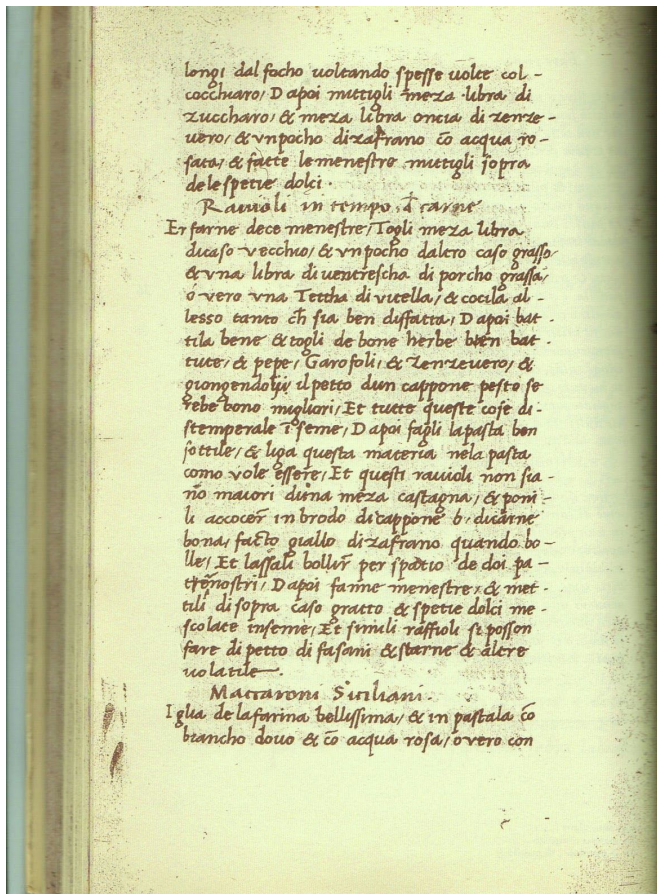 longi dal focho uoltando spesse uolte col -
cocchiaro, Dapoi mittigli meza libra di
zuccharo, & meza libra oncia di zenze -
uero, & vnpocho dizafrano cō acqua ro -
sata, & fatte lemenestre mittigli sopra
delespetie dolci.
Rauioli in tempo đ carne
Er farne dece menestre, Togli meza libra
dicaso vecchio, & vnpocho daltro caso grasso,
& vna libra diuentrescha di porcho grassa,
o vero vna Tettha di vitella, & cocila al -
lesso tanto ch̄ sia ben disfatta, Dapoi bat -
tila bene & togli de bone herbe bien bat -
tute, & pepe, Garofoli, & zenzeuero, &
giongendoui il petto dun cappone pesto se
rebe bono migliori, Et tutte queste cose di -
stemperale īseme, Dapoi fagli lapasta ben
sottile, & liga questa materia nela pasta
como vole essere, Et questi rauioli non sia -
no maiori duna meza castagna, & poni -
li accocer̄ inbrodo dicappone o, dicarne
bona, facto giallo dizafrano quando bo -
lle, Et lassali bollir̄ per spatio de doi pa -
trēnostri, Dapoi fanne menestre, & met -
tili disopra caso gratto & spetie dolci me -
scolate inseme, Et simili raffioli si posson
fare dipetto di fasani & starne & altre
volatile.
Maccaroni Siciliani.
Iglia de lafarina bellissima, & in pastala cō
biancho douo & cō acqua rosa, o vero con